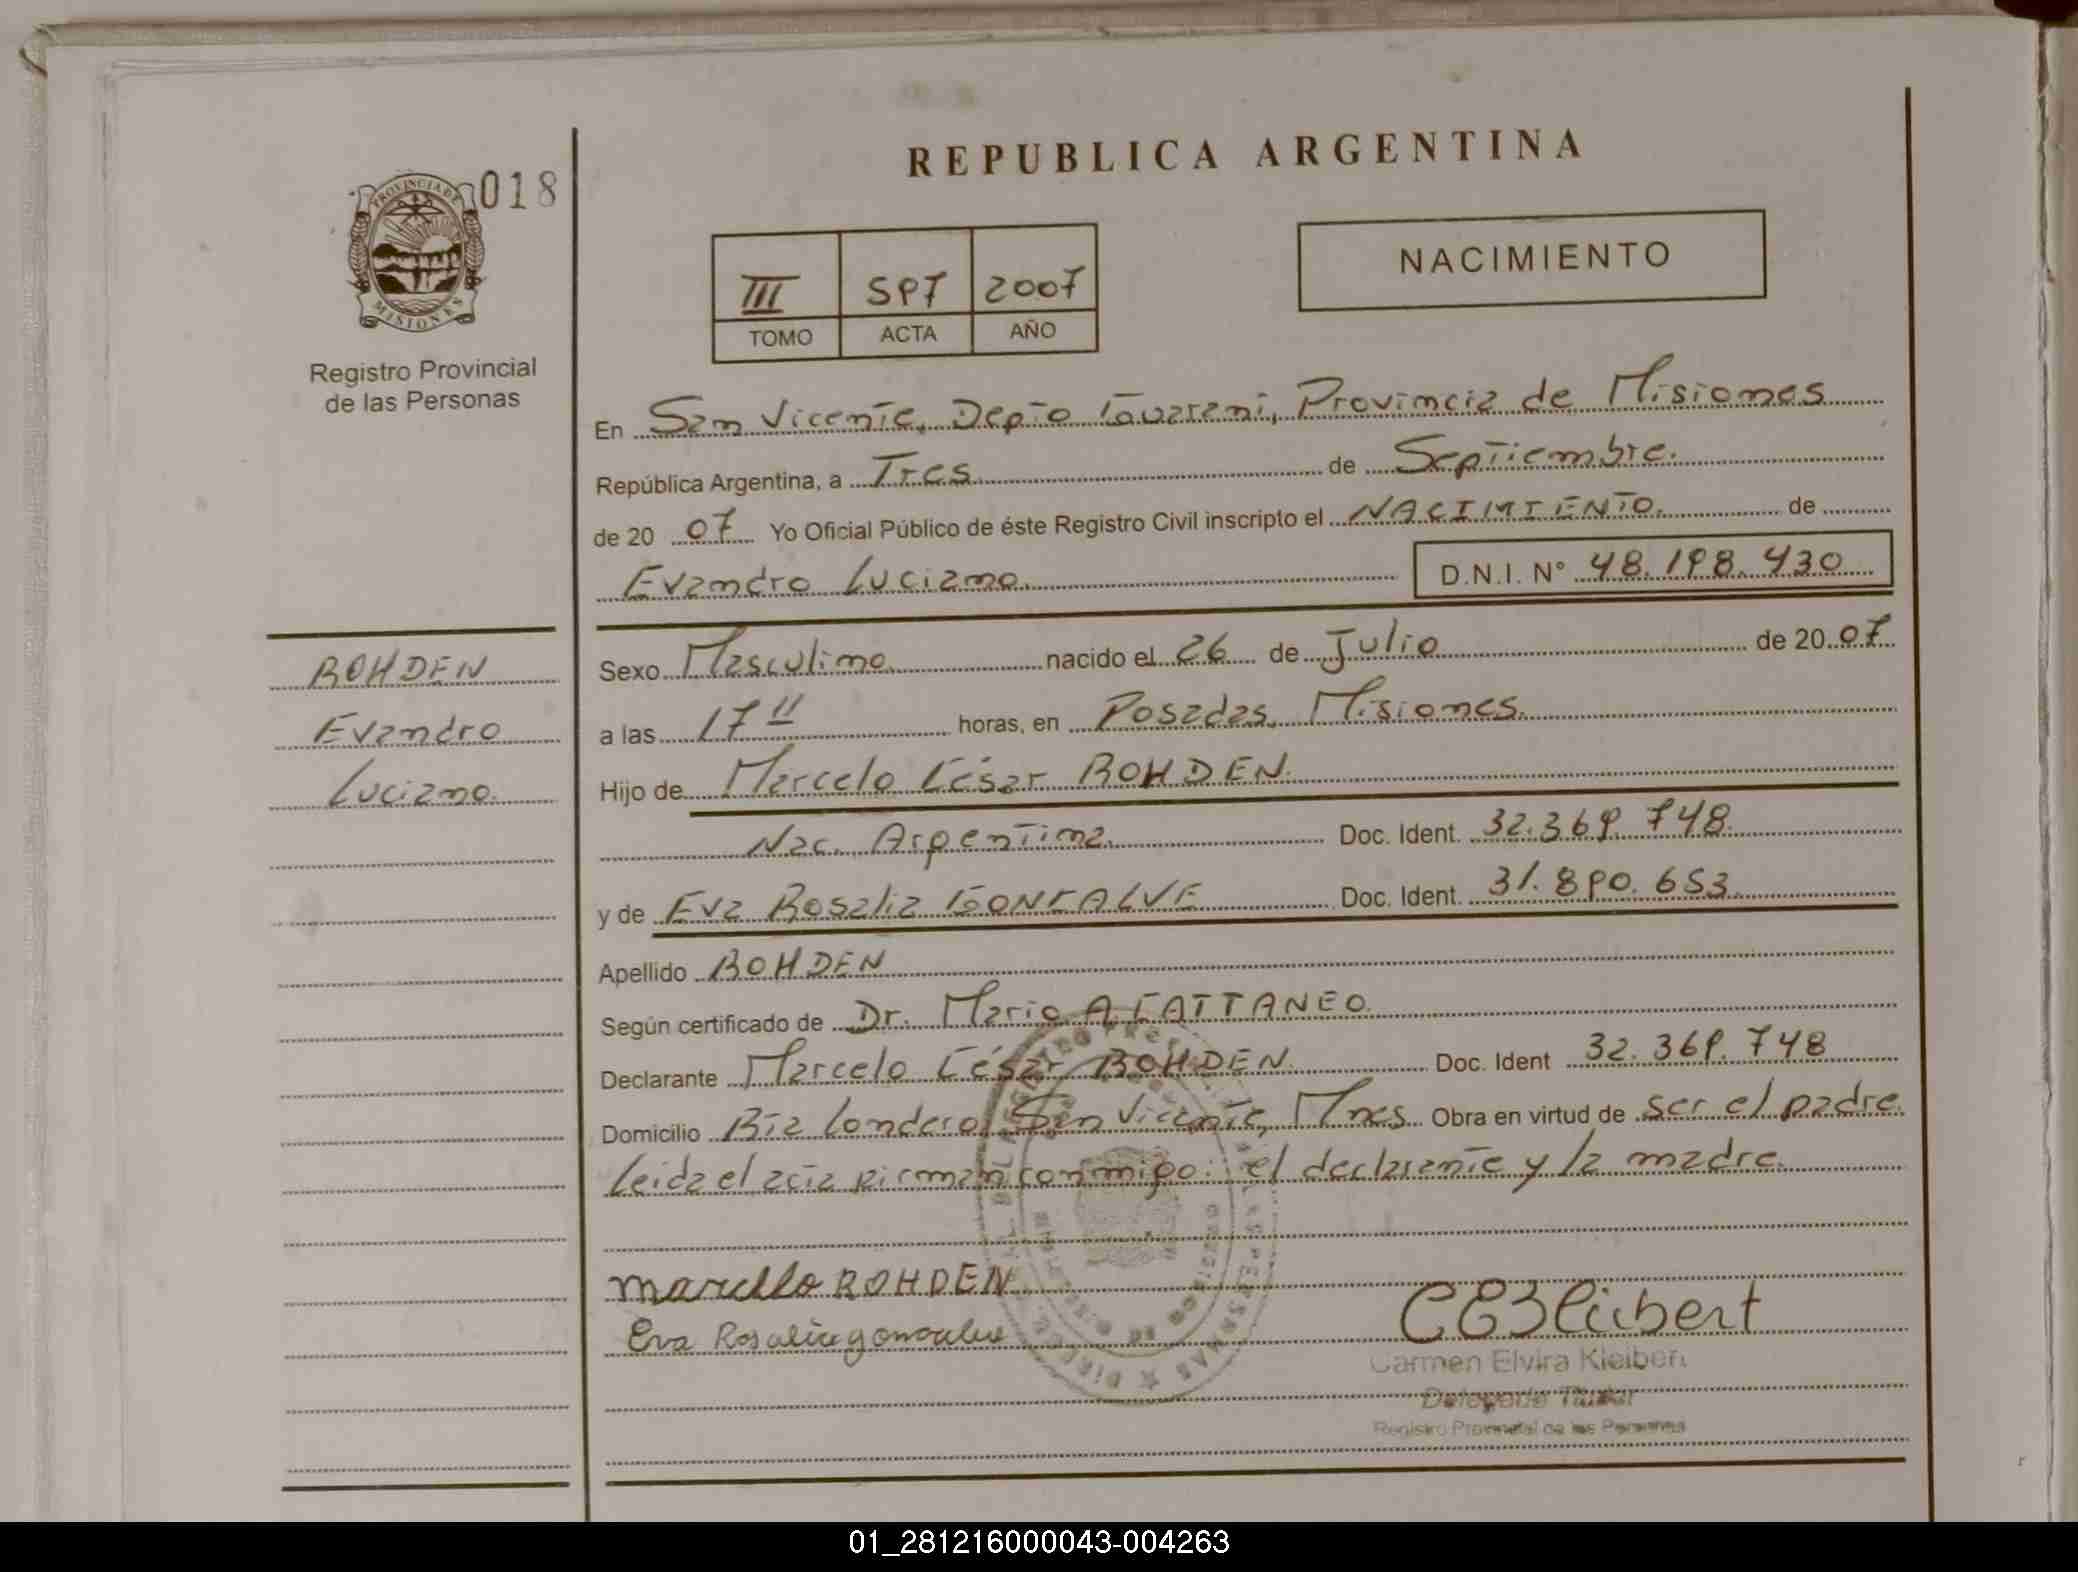 REPUBLICA ARGENTINA
018
PROVINCIA DE
MISIONES
Registro Provincial
de las Personas
III 597 2007
TOMO ACTA AÑO
NACIMIENTO
En San Vicente, Depto Guaraní, Provincia de Misiones
República Argentina, a Tres de Septiembre.
de 2007 Yo Oficial Público de éste Registro Civil inscripto el NACIMIENTO. de
Evandro Luciano. D.N.I. N° 48.198.430
ROHDEN
Evandro
Luciano.
Sexo Masculino. nacido el 26 de Julio de 2007
a las 17 11 horas, en Posadas, Misiones.
Hijo de Marcelo César ROHDEN.
Nac. Argentina. Doc. Ident. 32.369.748
y de Eva Rosalia GONCALVE Doc. Ident. 31.890.653
Apellido ROHDEN
Según certificado de Dr. Mario A CATTANEO.
Declarante Marcelo César ROHDEN. Doc. Ident 32.369.748
Domicilio Londero San Vicente, Mnes. Obra en virtud de ser el padre.
Leida el acta firman conmigo: el declarante y la madre.
Marcelo ROHDEN
Eva Rosalia
Carmen Elvira Kleibert
Delegada Titular
Registro Provincial de las Personas
01_281216000043-004263